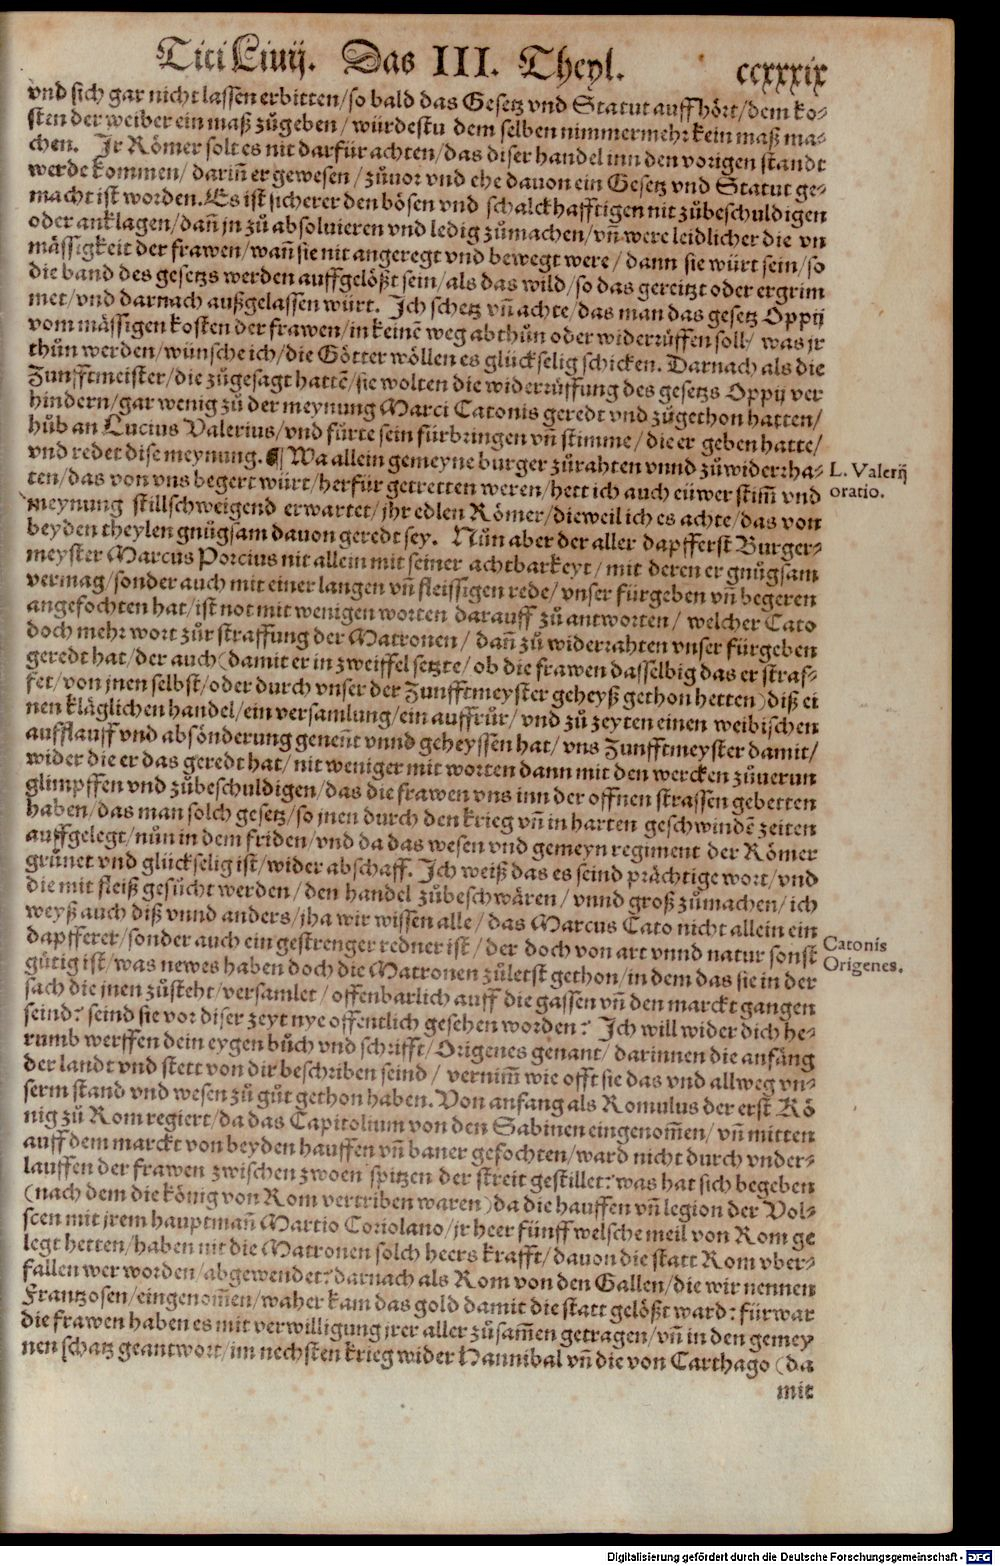 Titi Liuij. Das III. Theyl. ccxxxix
vnd sich gar nicht lassen erbitten/so bald das Gesetz vnd Statut auffhört/dem ko-
sten der weiber ein maß zůgeben/würdestu dem selben nimmermehr kein maß ma-
chen. Ir Römer solt es nit darfür achten/das diser handel inn den vorigen standt
werde kommen/darin̄ er gewesen/zůuor vnd ehe dauon ein Gesetz vnd Statut ge-
macht ist worden. Es ist sicherer den bösen vnd schalckhafftigen nit zůbeschuldigen
oder anklagen/dan̄ jn zů absoluieren vnd ledig zůmachen/vn̄ were leidlicher die vn
mässigkeit der frawen/wan̄ sie nit angeregt vnd bewegt were/dann sie würt sein/so
die band des gesetzs werden auffgelößt sein/als das wild/so das gereitzt oder ergrim
met/vnd darnach außgelassen würt. Ich schetz vn̄ achte/das man das gesetz Oppij
vom mässigen kosten der frawen/in keinē weg abthůn oder widerrüffen soll/was jr
thůn werden/wünsche ich/die Götter wöllen es glückselig schicken. Darnach als die
Zunfftmeister/die zůgesagt hattē/sie wolten die widerrüffung des gesetzs Oppij ver
hindern/gar wenig zů der meynung Marci Catonis geredt vnd zůgethon hatten/
hůb an Lucius Valerius/vnd fürte sein fürbringen vn̄ stimme/die er geben hatte/
vnd redet dise meynung. ¶ Wa allein gemeyne burger zůrahten vnnd zůwiderrha-
L. Valerij
oratio.
ten/das von vns begert würt/herfür getretten weren/hett ich auch eüwer stim̄ vnd
meynung stillschweigend erwartet/jhr edlen Römer/dieweil ich es achte/das von
beyden theylen gnůgsam dauon geredt sey. Nůn aber der aller dapfferst Burger-
meyster Marcus Porcius nit allein mit seiner achtbarkeyt/mit deren er gnůgsam
vermag/sonder auch mit einer langen vn̄ fleissigen rede/vnser fürgeben vn̄ begeren
angefochten hat/ist not mit wenigen worten darauff zů antworten/welcher Cato
doch mehr wort zůr straffung der Matronen/dan̄ zů widerrahten vnser fürgeben
geredt hat/der auch (damit er in zweiffel setzte/ob die frawen dasselbig das er straf-
fet/von jnen selbst/oder durch vnser der Zunfftmeyster geheyß gethon hetten) diß ei
nen kläglichen handel/ein versamlung/ein auffrůr/vnd zů zeyten einen weibischen
aufflauff vnd absönderung genen̄t vnnd geheyssen hat/vns Zunfftmeyster damit/
wider die er das geredt hat/nit weniger mit worten dann mit den wercken zůuerun
glimpffen vnd zůbeschuldigen/das die frawen vns inn der offnen strassen gebetten
haben/das man solch gesetz/so jnen durch den krieg vn̄ in harten geschwindē zeiten
auffgelegt/nůn in dem friden/vnd da das wesen vnd gemeyn regiment der Römer
grünet vnd glückselig ist/wider abschaff. Ich weiß das es seind prächtige wort/vnd
die mit fleiß gesůcht werden/den handel zůbeschwären/vnnd groß zůmachen/ich
weyß auch diß vnnd anders/jha wir wissen alle/das Marcus Cato nicht allein ein
dapfferer/sonder auch ein gestrenger redner ist/der doch von art vnnd natur sonst
Catonis
Origenes.
gütig ist/was newes haben doch die Matronen zůletst gethon/in dem das sie in der
sach die jnen zůsteht/versamlet/offenbarlich auff die gassen vn̄ den marckt gangen
seind? seind sie vor diser zeyt nye offentlich gesehen worden? Ich will wider dich he-
rumb werffen dein eygen bůch vnd schrifft/Origenes genant/darinnen die anfäng
der landt vnd stett von dir beschriben seind/vernim̄ wie offt sie das vnd allweg vn-
serm stand vnd wesen zů gůt gethon haben. Von anfang als Romulus der erst Kö
nig zů Rom regiert/da das Capitolium von den Sabinen eingenom̄en/vn̄ mitten
auff dem marckt von beyden hauffen vn̄ baner gefochten/ward nicht durch vnder-
lauffen der frawen zwischen zwoen spitzen der streit gestillet? was hat sich begeben
(nach dem die könig von Rom vertriben waren) da die hauffen vn̄ legion der Vol-
scen mit jrem hauptman̄ Martio Coriolano/jr heer fünff welsche meil von Rom ge
legt hetten/haben nit die Matronen solch heers krafft/dauon die statt Rom vber-
fallen wer worden/abgewendet? darnach als Rom von den Gallen/die wir nennen
Frantzosen/eingenom̄en/waher kam das gold damit die statt gelößt ward? fürwar
die frawen haben es mit verwilligung jrer aller zůsam̄en getragen/vn̄ in den gemey
nen schatz geantwort/im nechsten krieg wider Hannibal vn̄ die von Carthago (da
mit
Digitalisierung gefördert durch die Deutsche Forschungsgemeinschaft - DFG